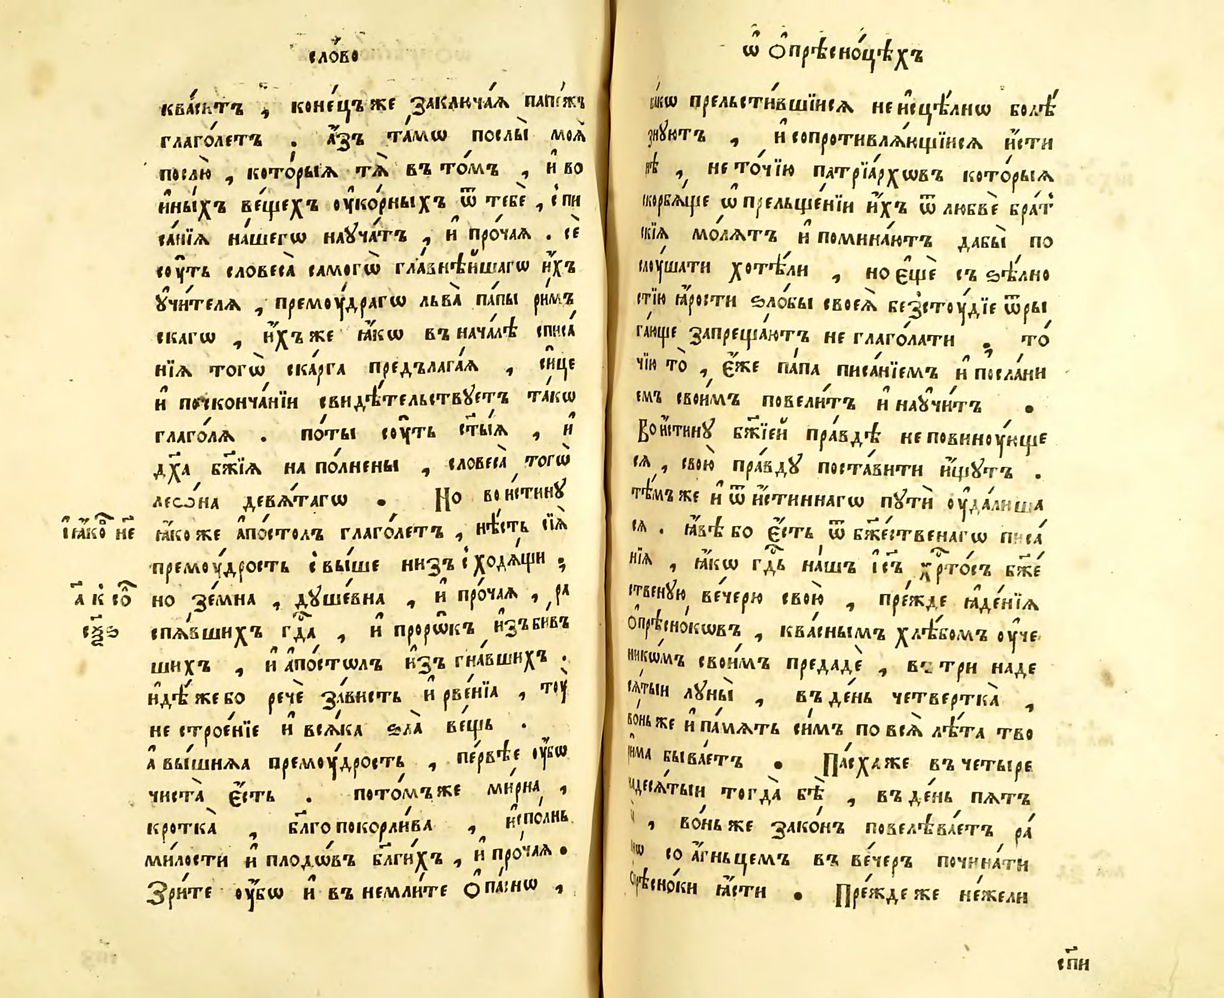 сло́во
ква́ситъ , коне́цъ же заключа́ѧ папе́жъ
глаго́летъ . а҆́зъ та́мѡ послы̀ моѧ̀
послю̀ , кото́рыѧ тѧ̀ в то́мъ , и҆ во
и҆ны́хъ ве́щехъ оу҆ко́рныхъ ѿ тебѐ , с пи
са́нїѧ на́шегѡ науча́тъ , и҆ про́чаѧ . сѐ
соу́ть словеса̀ самогѡ̀ гла́внѣйшагѡ и҆́хъ
ᲂу҆чи́телѧ , премоу́драгѡ льва̀ па́пы ри́мъ
скагѡ , и҆́хъ же ꙗ҆́кѡ в нача́лѣ списа́
нїѧ тогѡ̀ ска́рга предълага́ѧ , си́це
и҆ по сконча́нїи свидѣ́тельствꙋетъ та́кѡ
глаго́лѧ . по́ты соу́ть ст҃ы́ѧ , и҆
дх҃а бж҃їѧ напо́лнены , словеса̀ тогѡ̀
леѡ́на девѧ́тагѡ . Но вои́стинꙋ
ꙗ҆́коже а҆по́столъ глаго́летъ , нѣ́сть сїѧ̀
премоу́дрость свы́ше низъсходѧ́щи ;
но зе́мна , дꙋше́вна , и҆ про́чаѧ , ра
спѧ́вшихъ гдⷭ҇а , и҆ прорѡ́къ и҆зъби́въ
шихъ , и҆ а҆по́столъ и҆зъгна́вшихъ .
и҆дѣ́же бо речѐ за́висть и҆ рве́нїа , тоу̀
не строе́нїе и҆ всѧ́ка ѕла̀ ве́щь .
а҆ вы́шнѧа премоу́дрость , пе́рвѣе оу҆́бѡ
чиста̀ є҆́сть . пото́мъ же ми́рна ,
кротка̀ , бл҃гопокорли́ва , и҆спо́лнь
ми́лости и҆ плодѡ́въ бл҃ги́хъ , и҆ про́чаѧ .
Зри́те оу҆́бѡ и҆ внемли́те ѻ҆па́снѡ ,
і҆а́кѡ не
а҃ к со
сꙋ ѕ
ѡ҆ ѻ҆прѣсно́цѣхъ
ꙗ҆́кѡ прельсти́вшїисѧ неи҆сцѣ́лнѡ болѣ́
знꙋютъ , и҆ сопротивлѧ́ющїисѧ и҆́сти
нѣ , не то́чїю патрїа́рхѡвъ кото́рыѧ
скорбѧ́ще ѡ҆ прельще́нїи и҆́хъ ѿ любвѐ бра́т
скїѧ мо́лѧтъ и҆ помина́ютъ дабы̀ по
слоушати хотѣ́ли , но є҆щѐ съ ѕѣ́лно
стїю ꙗ҆́рости ѕло́бы своеѧ̀ безстоу́дїе ѿры
га́юще запреща́ютъ не глаго́лати . то́
чїю то̀ , є҆́же па́па писа́нїемъ и҆ посла́ни
емъ свои́мъ повели́тъ и҆ наꙋчи́тъ .
Вои́стинꙋ бж҃їей пра́вдѣ не повиноу́юще
сѧ , свою̀ пра́вдꙋ поста́вити и҆́щꙋтъ .
тѣ́мъ же и҆ ѿ и҆́стиннагѡ пꙋтѝ оу҆дали́ша
сѧ . ꙗ҆́вѣ бо є҆́сть ѿ бж҃е́ственагѡ писа́
нїѧ , ꙗ҆́кѡ гдⷭ҇ь на́шъ і҆с҃ъ хрⷭ҇то́съ бж҃е́
ственꙋю вече́рю свою̀ , пре́жде ꙗ҆де́нїѧ
ѻ҆прѣсно́кѡвъ , ква́снымъ хлѣ́бомъ оу҆че
никѡ́мъ свои́мъ предадѐ , в три наде
сѧ́тыи лꙋны̀ , въ де́нь четвертка̀ ,
во́ньже и҆ па́мѧть си́мъ по всѧ̀ лѣ́та тво
ри́ма быва́етъ . Па́сха же в четыре
надесѧ́тыи тогда̀ бѣ̀ , въ де́нь пѧ́тъ
, во́ньже зако́нъ повелѣва́етъ ра́
нѡ со а҆́гньцемъ въ ве́черъ почина́ти
ѻ҆прѣсно́ки ꙗ҆́сти . Пре́жде же не́жели
сп҃и